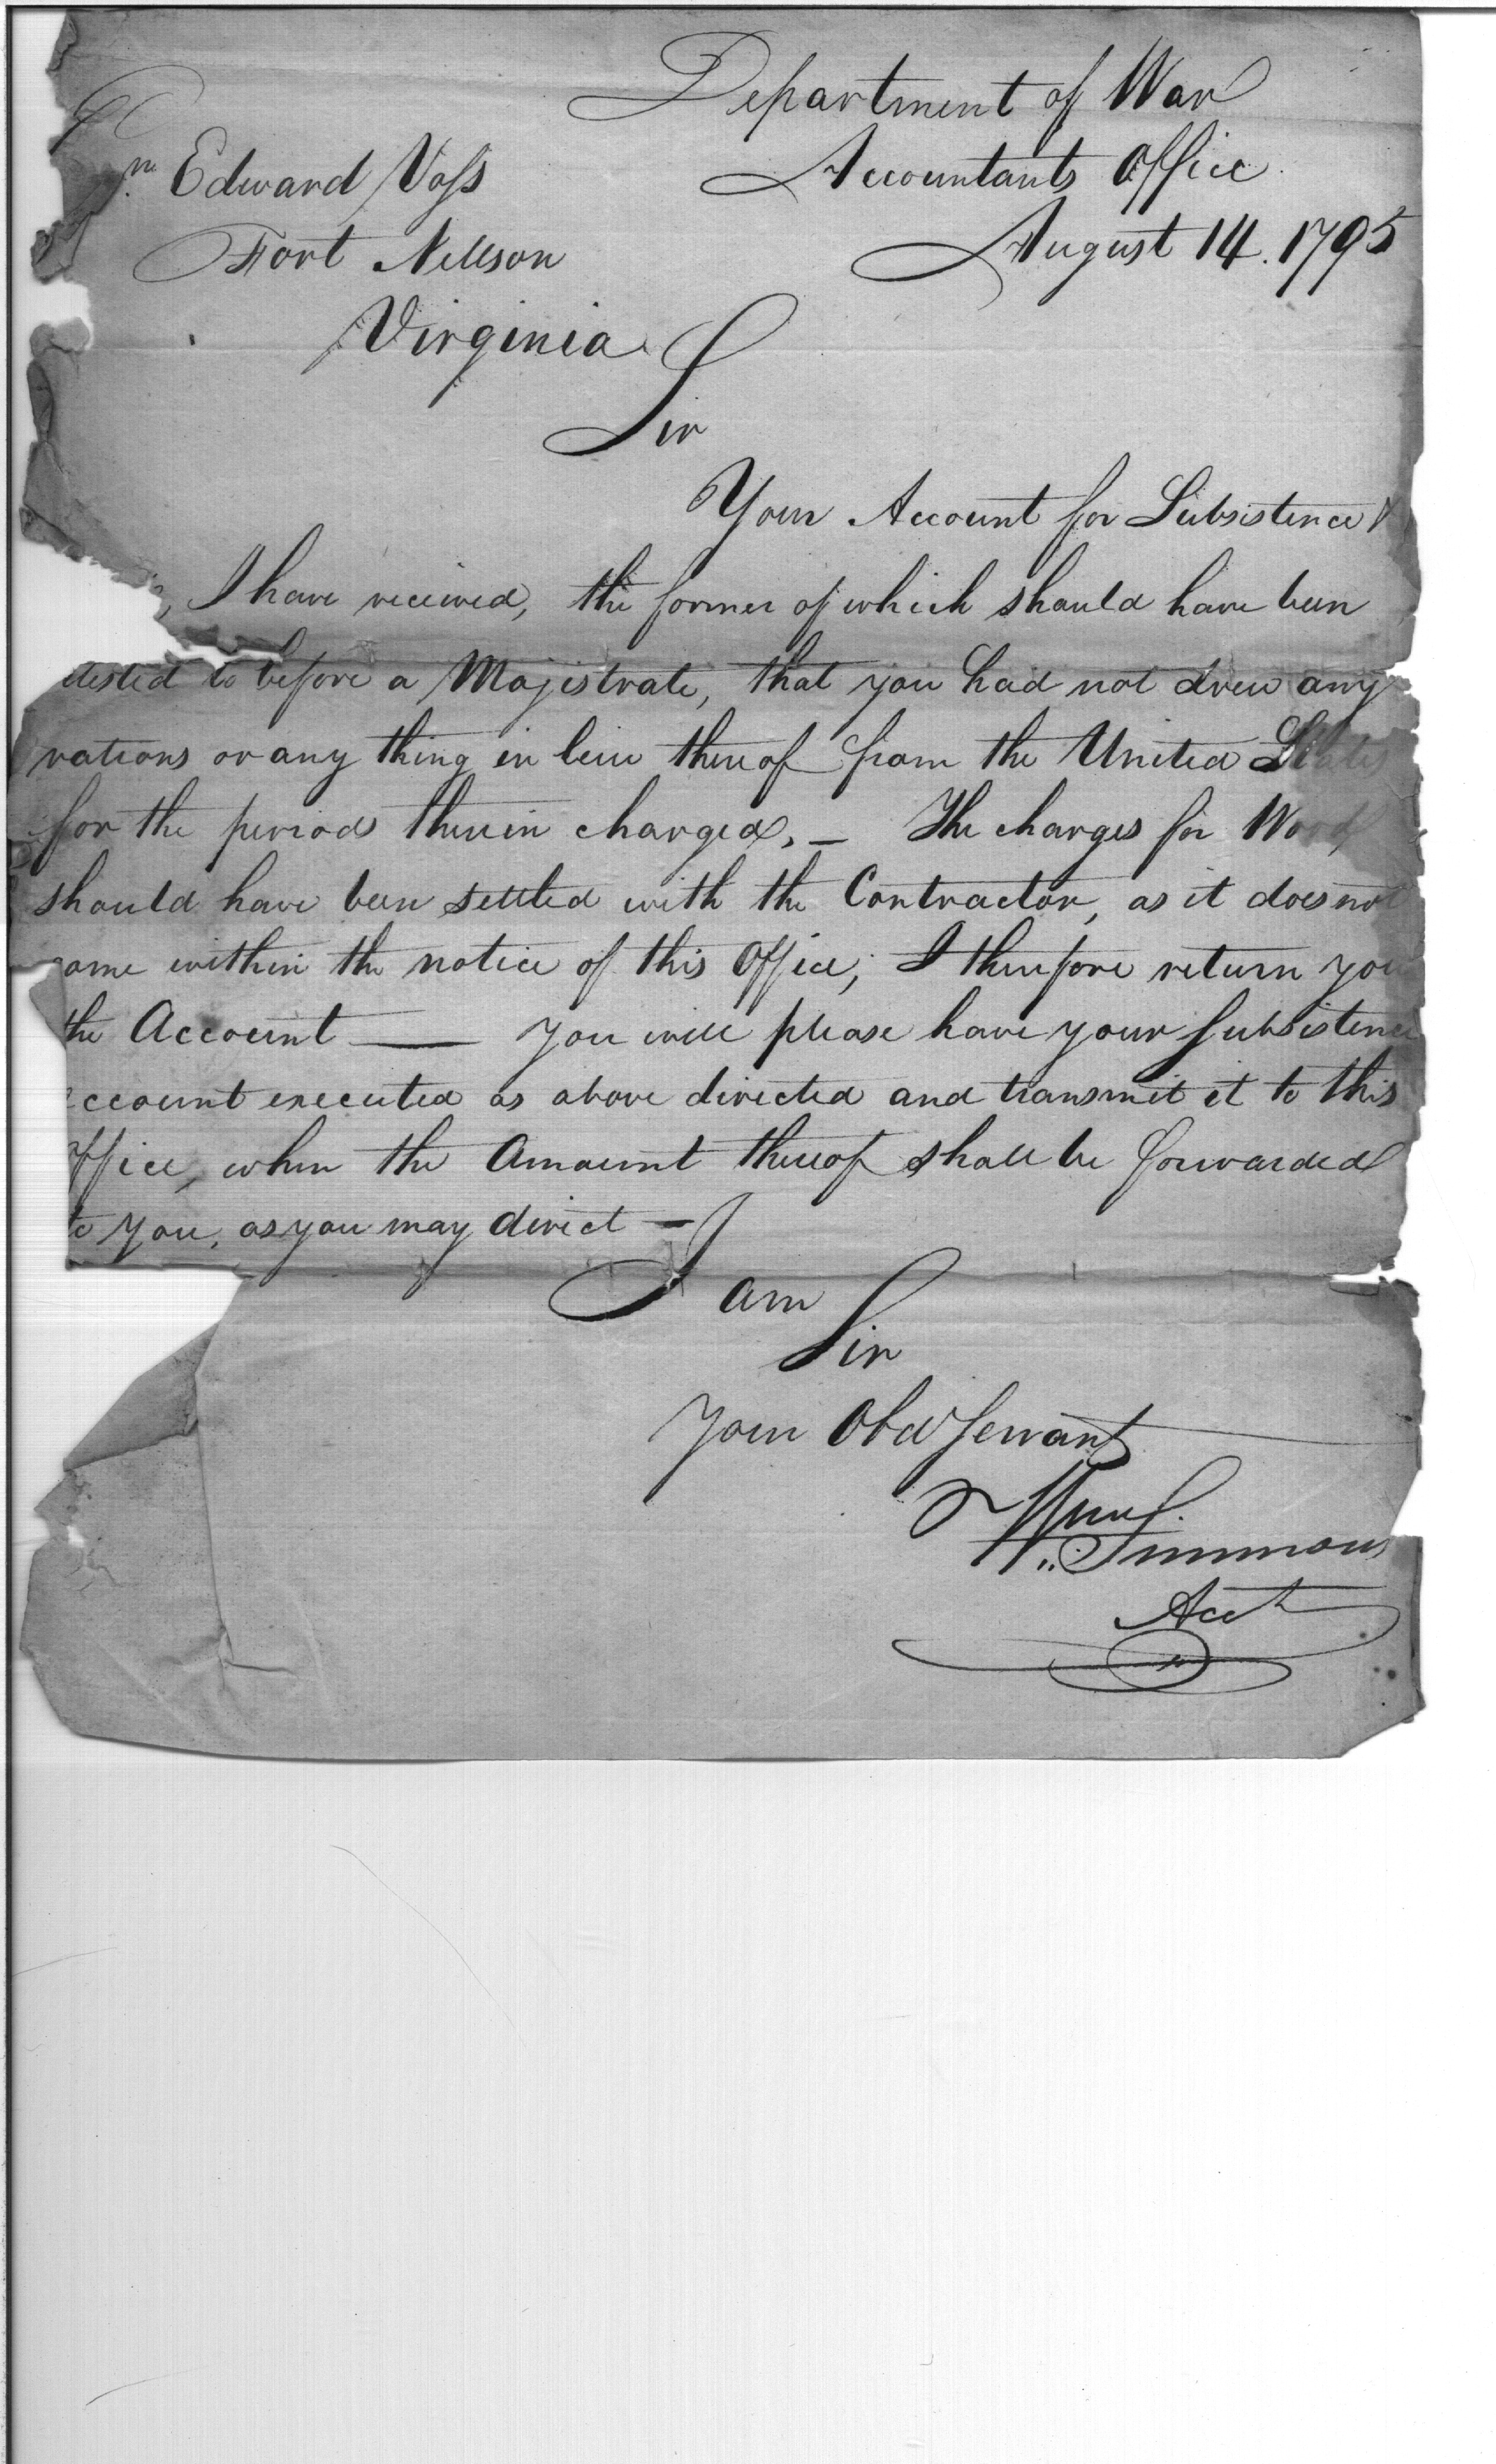 Department of War
Accountants Office
August 14. 1795
Edward Voſs
Fort Nellson
Virginia
Sir
Your Account for Subsistence &
I have received, the former of which should have been
to before a Majistrate, that you had not drew any
rations or any thing in lieu thereof from the United States
for the period therein charged. — The charges for Wood
should have been settled with the Contractor, as it does not
come within the notice of this Office; I therefore return you
the Account — You will please have your Subsistence
ccount executed as above directed and transmit it to this
ffice, when the Amount thereof shall be forwarded
to you, as you may direct —
I am
Sir
Your Obd Servant
Wm Simmons
Acct